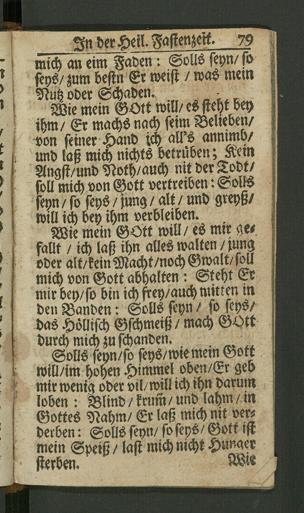 In der Heil. Fastenzeit. 79
mich an eim Faden: Solls seyn/ so
seys/ zum bestn Er weist / was mein
Nutz oder Schaden.
Wie mein GOtt will/ es steht bey
ihm/ Er machs nach seim Belieben/
von seiner Hand ich all's annimb/
und laß mich nichts betrüben; Kein
Angst/ und Noth/ auch nit der Todt/
soll mich von Gott vertreiben: Solls
seyn/ so seys/ jung/ alt/ und greyß/
will ich bey ihm verbleiben.
Wie mein GOtt will/ es mir ge-
fallt / ich laß ihn alles walten/ jung
oder alt/ kein Macht/ noch Gwalt/ soll
mich von Gott abhalten: Steht Er
mir bey/ so bin ich frey/ auch mitten in
den Banden: Solls seyn / so seys/
das Höllisch Gschmeiß/ mach GOtt
durch mich zu schanden.
Solls seyn/ so seys/ wie mein Gott
will/ im hohen Himmel oben/ Er geb
mir wenig oder vil/ will ich ihn darum
loben: Blind/ krum̄/ und lahm/ in
Gottes Nahm/ Er laß mich nit ver-
derben: Solls seyn/ so seys/ Gott ist
mein Speiß/ last mich nicht Hunger
sterben. Wie